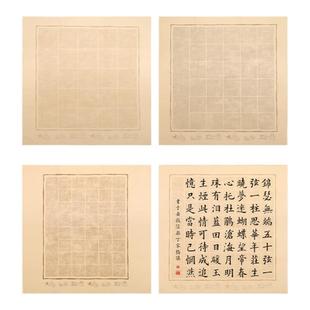 錦瑟無端五十弦一
弦一柱思華年莊生
曉夢迷蝴蝶望帝春
心托杜鵑滄海月明
珠有泪藍田日暖玉
生煙此情可待成追
憶只是當時已惘然